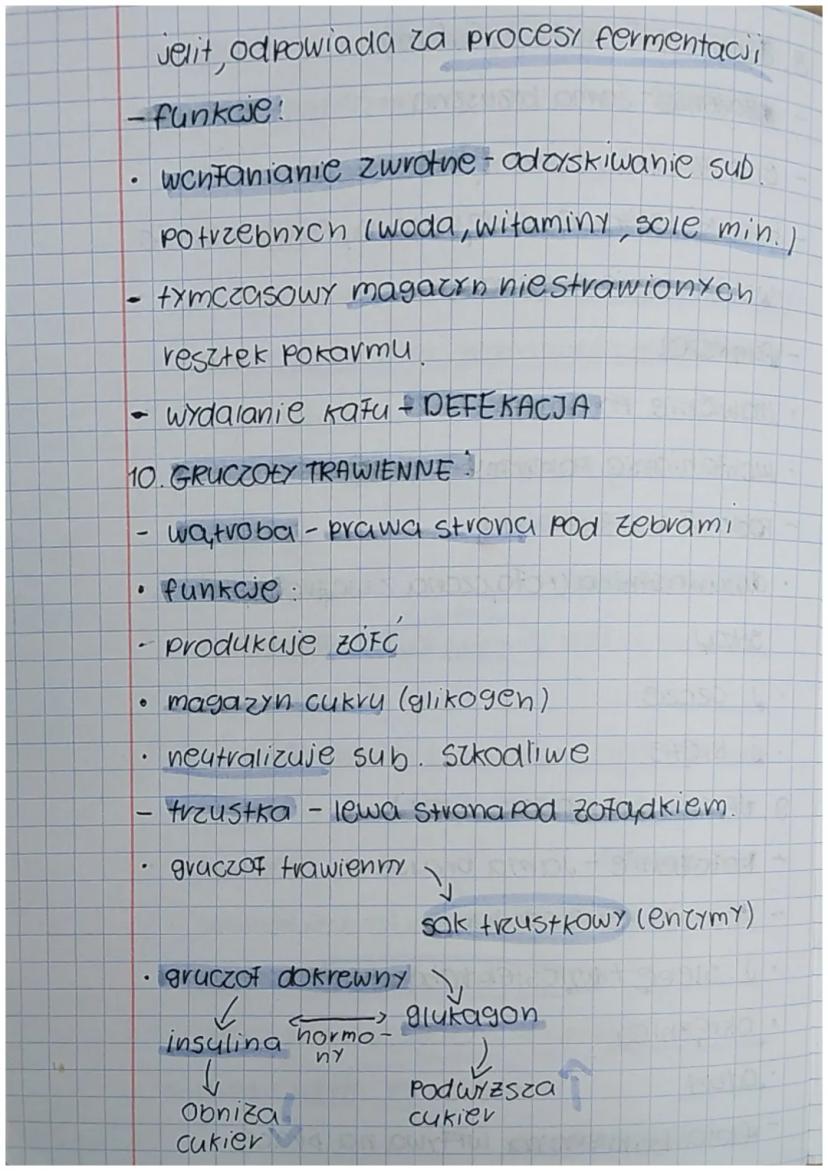 jelit, odpowiada za procesy fermentacji
- funkcje:
• wchłanianie zwrotne - odzyskiwanie sub.
potrzebnych (woda, witaminy, sole min.)
- tymczasowy magazyn niestrawionych
resztek pokarmu.
- wydalanie kału - DEFEKACJA
10. GRUCZOŁY TRAWIENNE:
- wątroba - prawa strona pod żebrami
• funkcje:
- produkuje ŻÓŁĆ
• magazyn cukru (glikogen)
• neutralizuje sub. szkodliwe
- trzustka - lewa strona pod żołądkiem.
• gruczoł trawienny ↘
sok trzustkowy (enzymy)
• gruczoł dokrewny ↘
↙ insulina ↔ hormo- glukagon
ny
↓ obniża ↓ podwyższa ↑
cukier cukier